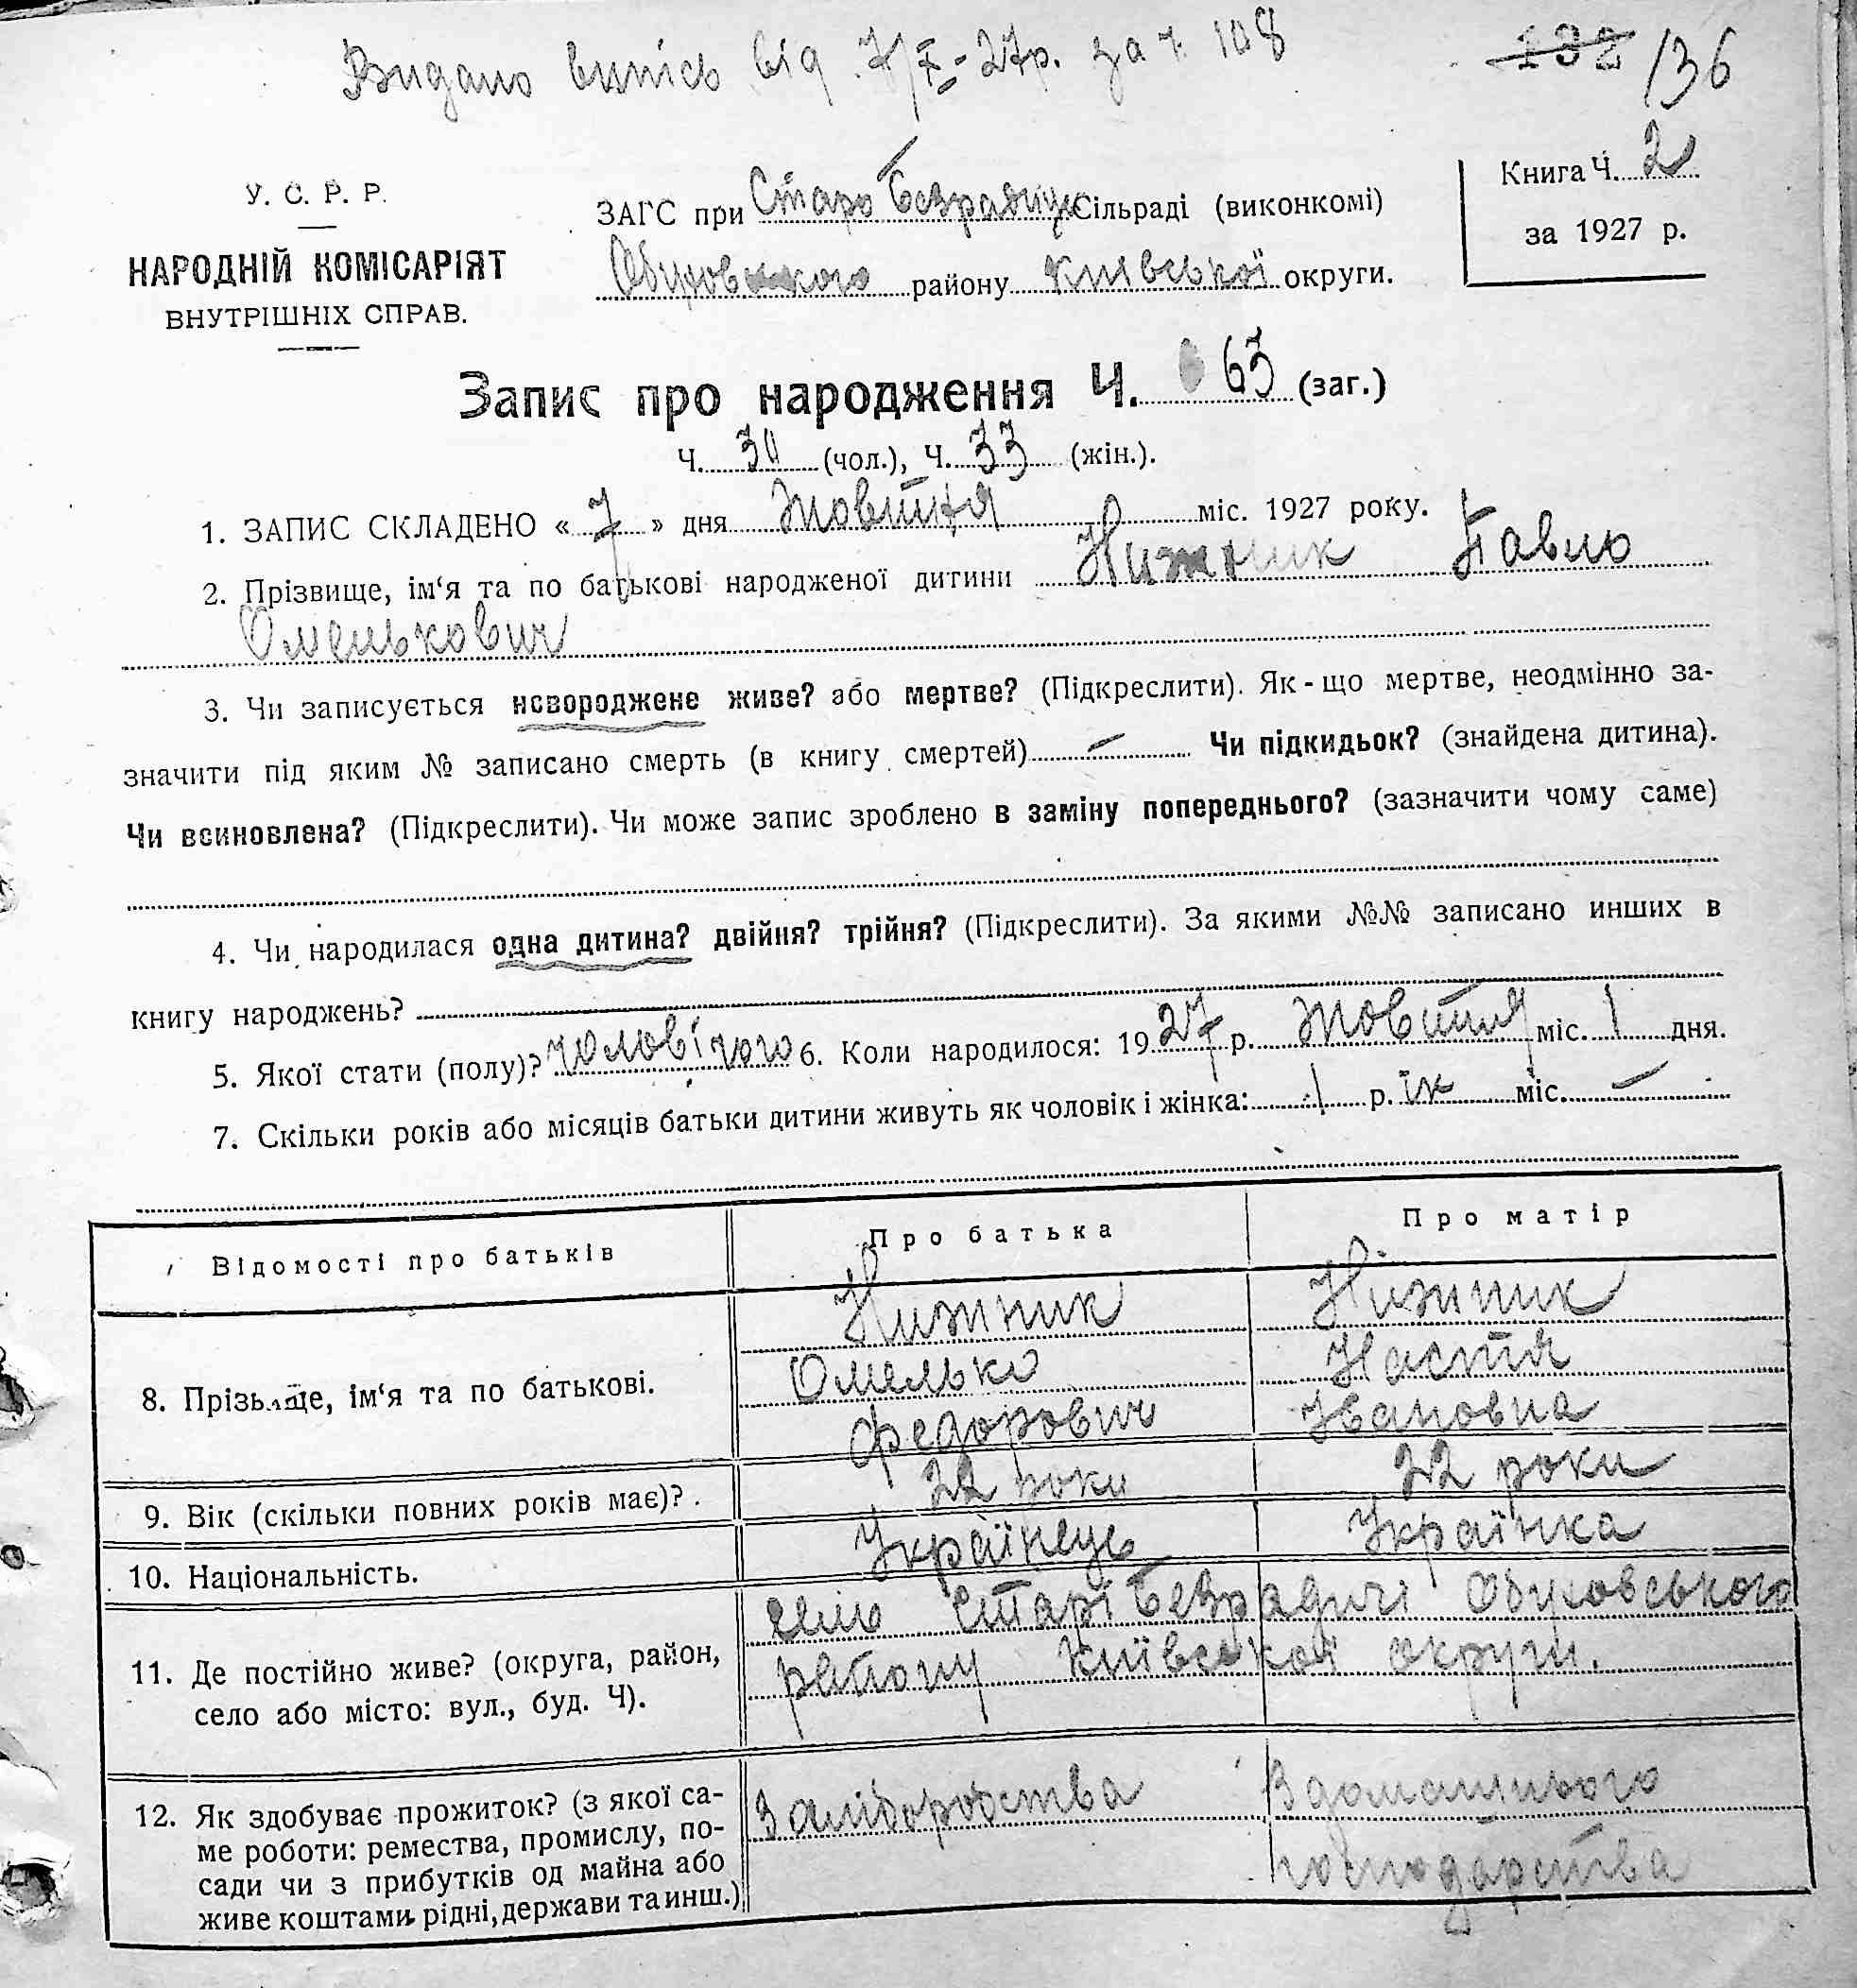 Видано випісь від 7/X-27р. за ч. 108
132 136
Книга Ч. 2
за 1927 р.
У. С. Р. Р.
НАРОДНІЙ КОМІСАРІЯТ
ВНУТРІШНІХ СПРАВ.
ЗАГС при Старо Безрадицькій Сільраді (виконкомі)
Обуховського району Київської округи.
Запис про народження Ч. 63 (заг.)
Ч. 30 (чол.), Ч. 33 (жін.).
1. ЗАПИС СКЛАДЕНО « 7 » дня Жовтня міс. 1927 року.
2. Прізвище, ім‘я та по батькові народженої дитини Нижник Павло
Омелькович
3. Чи записується новороджене живе? або мертве? (Підкреслити). Як-що мертве, неодмінно за-
значити під яким № записано смерть (в книгу смертей) – Чи підкидьок? (знайдена дитина).
Чи всиновлена? (Підкреслити). Чи може запис зроблено в заміну попереднього? (зазначити чому саме)
4. Чи народилася одна дитина? двійня? трійня? (Підкреслити). За якими №№ записано инших в
книгу народжень?
5. Якої стати (полу)? чоловічого 6. Коли народилося: 1927 р. Жовтня міс. 1 дня.
7. Скільки років або місяців батьки дитини живуть як чоловік і жінка: 1 р.ік міс. –
Відомості про батьків Про батька Про матір
8. Прізвище, ім‘я та по батькові.
Нижник Нижник
Омелько Настя
Федорович Івановна
9. Вік (скільки повних років має)? 22 роки 22 роки
10. Національність. Українець Українка
11. Де постійно живе? (округа, район,
село або місто: вул., буд. Ч).
село Старі Безрадичі Обуховського
району Київської округи.
12. Як здобуває прожиток? (з якої са-
ме роботи: ремества, промислу, по-
сади чи з прибутків од майна або
живе коштами рідні, держави та инш.)
З хліборобства З домашнього
господарства